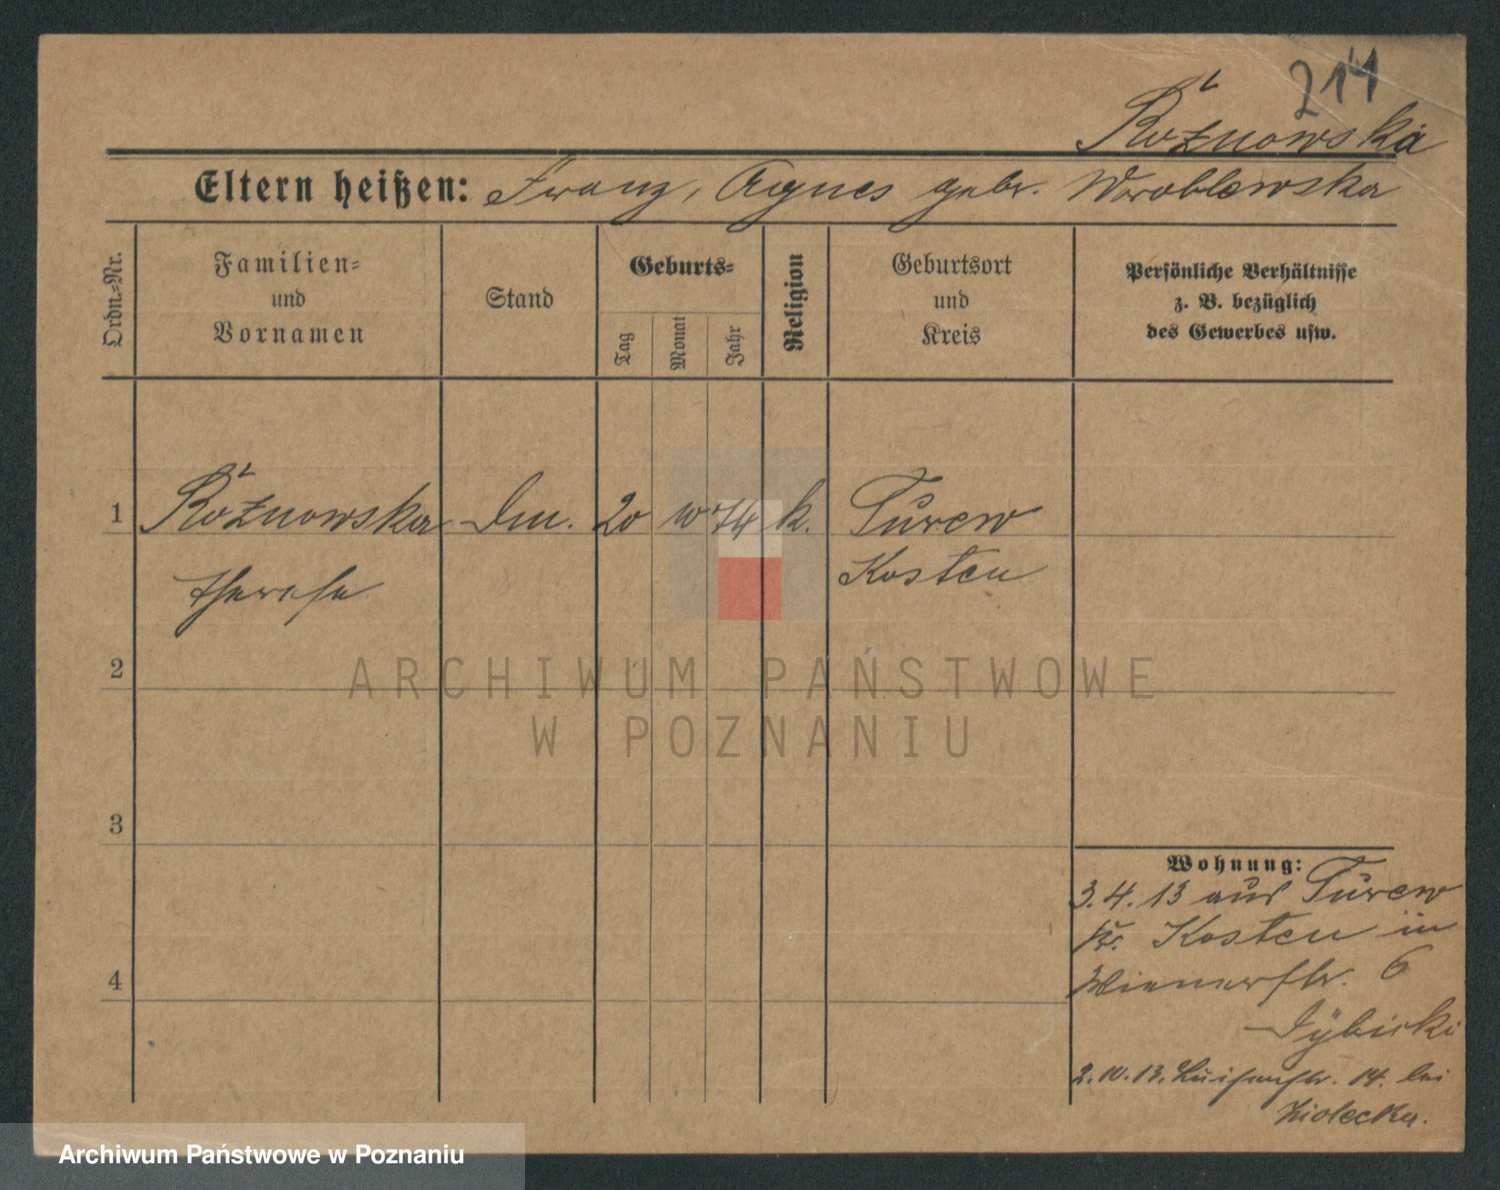 214
Różnowska
Eltern heißen: Franz, Agnes gebr. Woroblewska
Ordn.-Nr.
Familien-
und
Vornamen
Stand
Geburts-
Tag
Monat
Jahr
Religion
Geburtsort
und
Kreis
Persönliche Verhältnisse
z. B. bezüglich
des Gewerbes usw.
1 Różnowska 20 10 74 k. Turew
Therese Kosten
2
3
4
Wohnung:
3.4.13 aus Turew
Kr. Kosten in
Wienerstr. 6
2.10.13. Luisenstr. 14. bei
Ziolecka.
ARCHIWUM PAŃSTWOWE
W POZNANIU
Archiwum Państwowe w Poznaniu